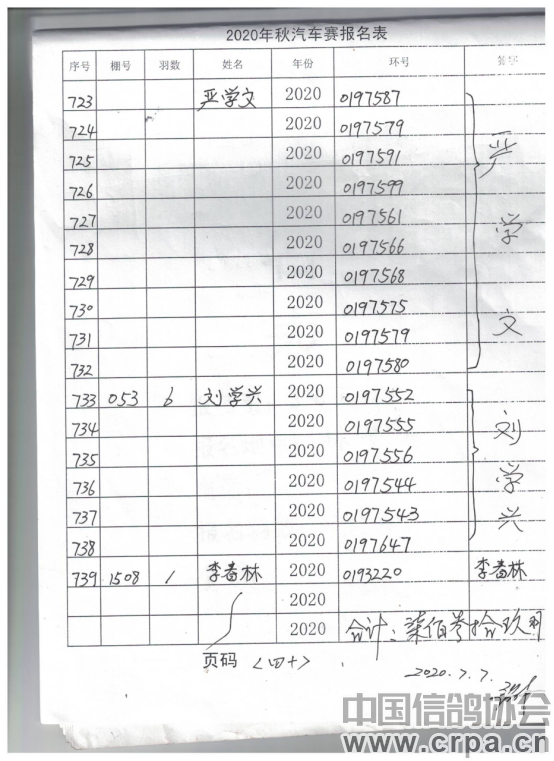 2020年秋汽车赛报名表
序号 棚号 羽数 姓名 年份 环号 签字
723 严学文 2020 0197587
724 2020 0197579
725 2020 0197591
726 2020 0197599
727 2020 0197561
728 2020 0197566
729 2020 0197568
730 2020 0197575
731 2020 0197579
732 2020 0197580
严学文
733 053 6 刘学兴 2020 0197552
734 2020 0197555
735 2020 0197556
736 2020 0197544
737 2020 0197543
738 2020 0197647
刘学兴
739 1508 1 李春林 2020 0193220 李春林
2020
2020 合计：柒佰叁拾玖羽
页码 (四十)
2020.7.7.
中国信鸽协会
www.crpa.cn